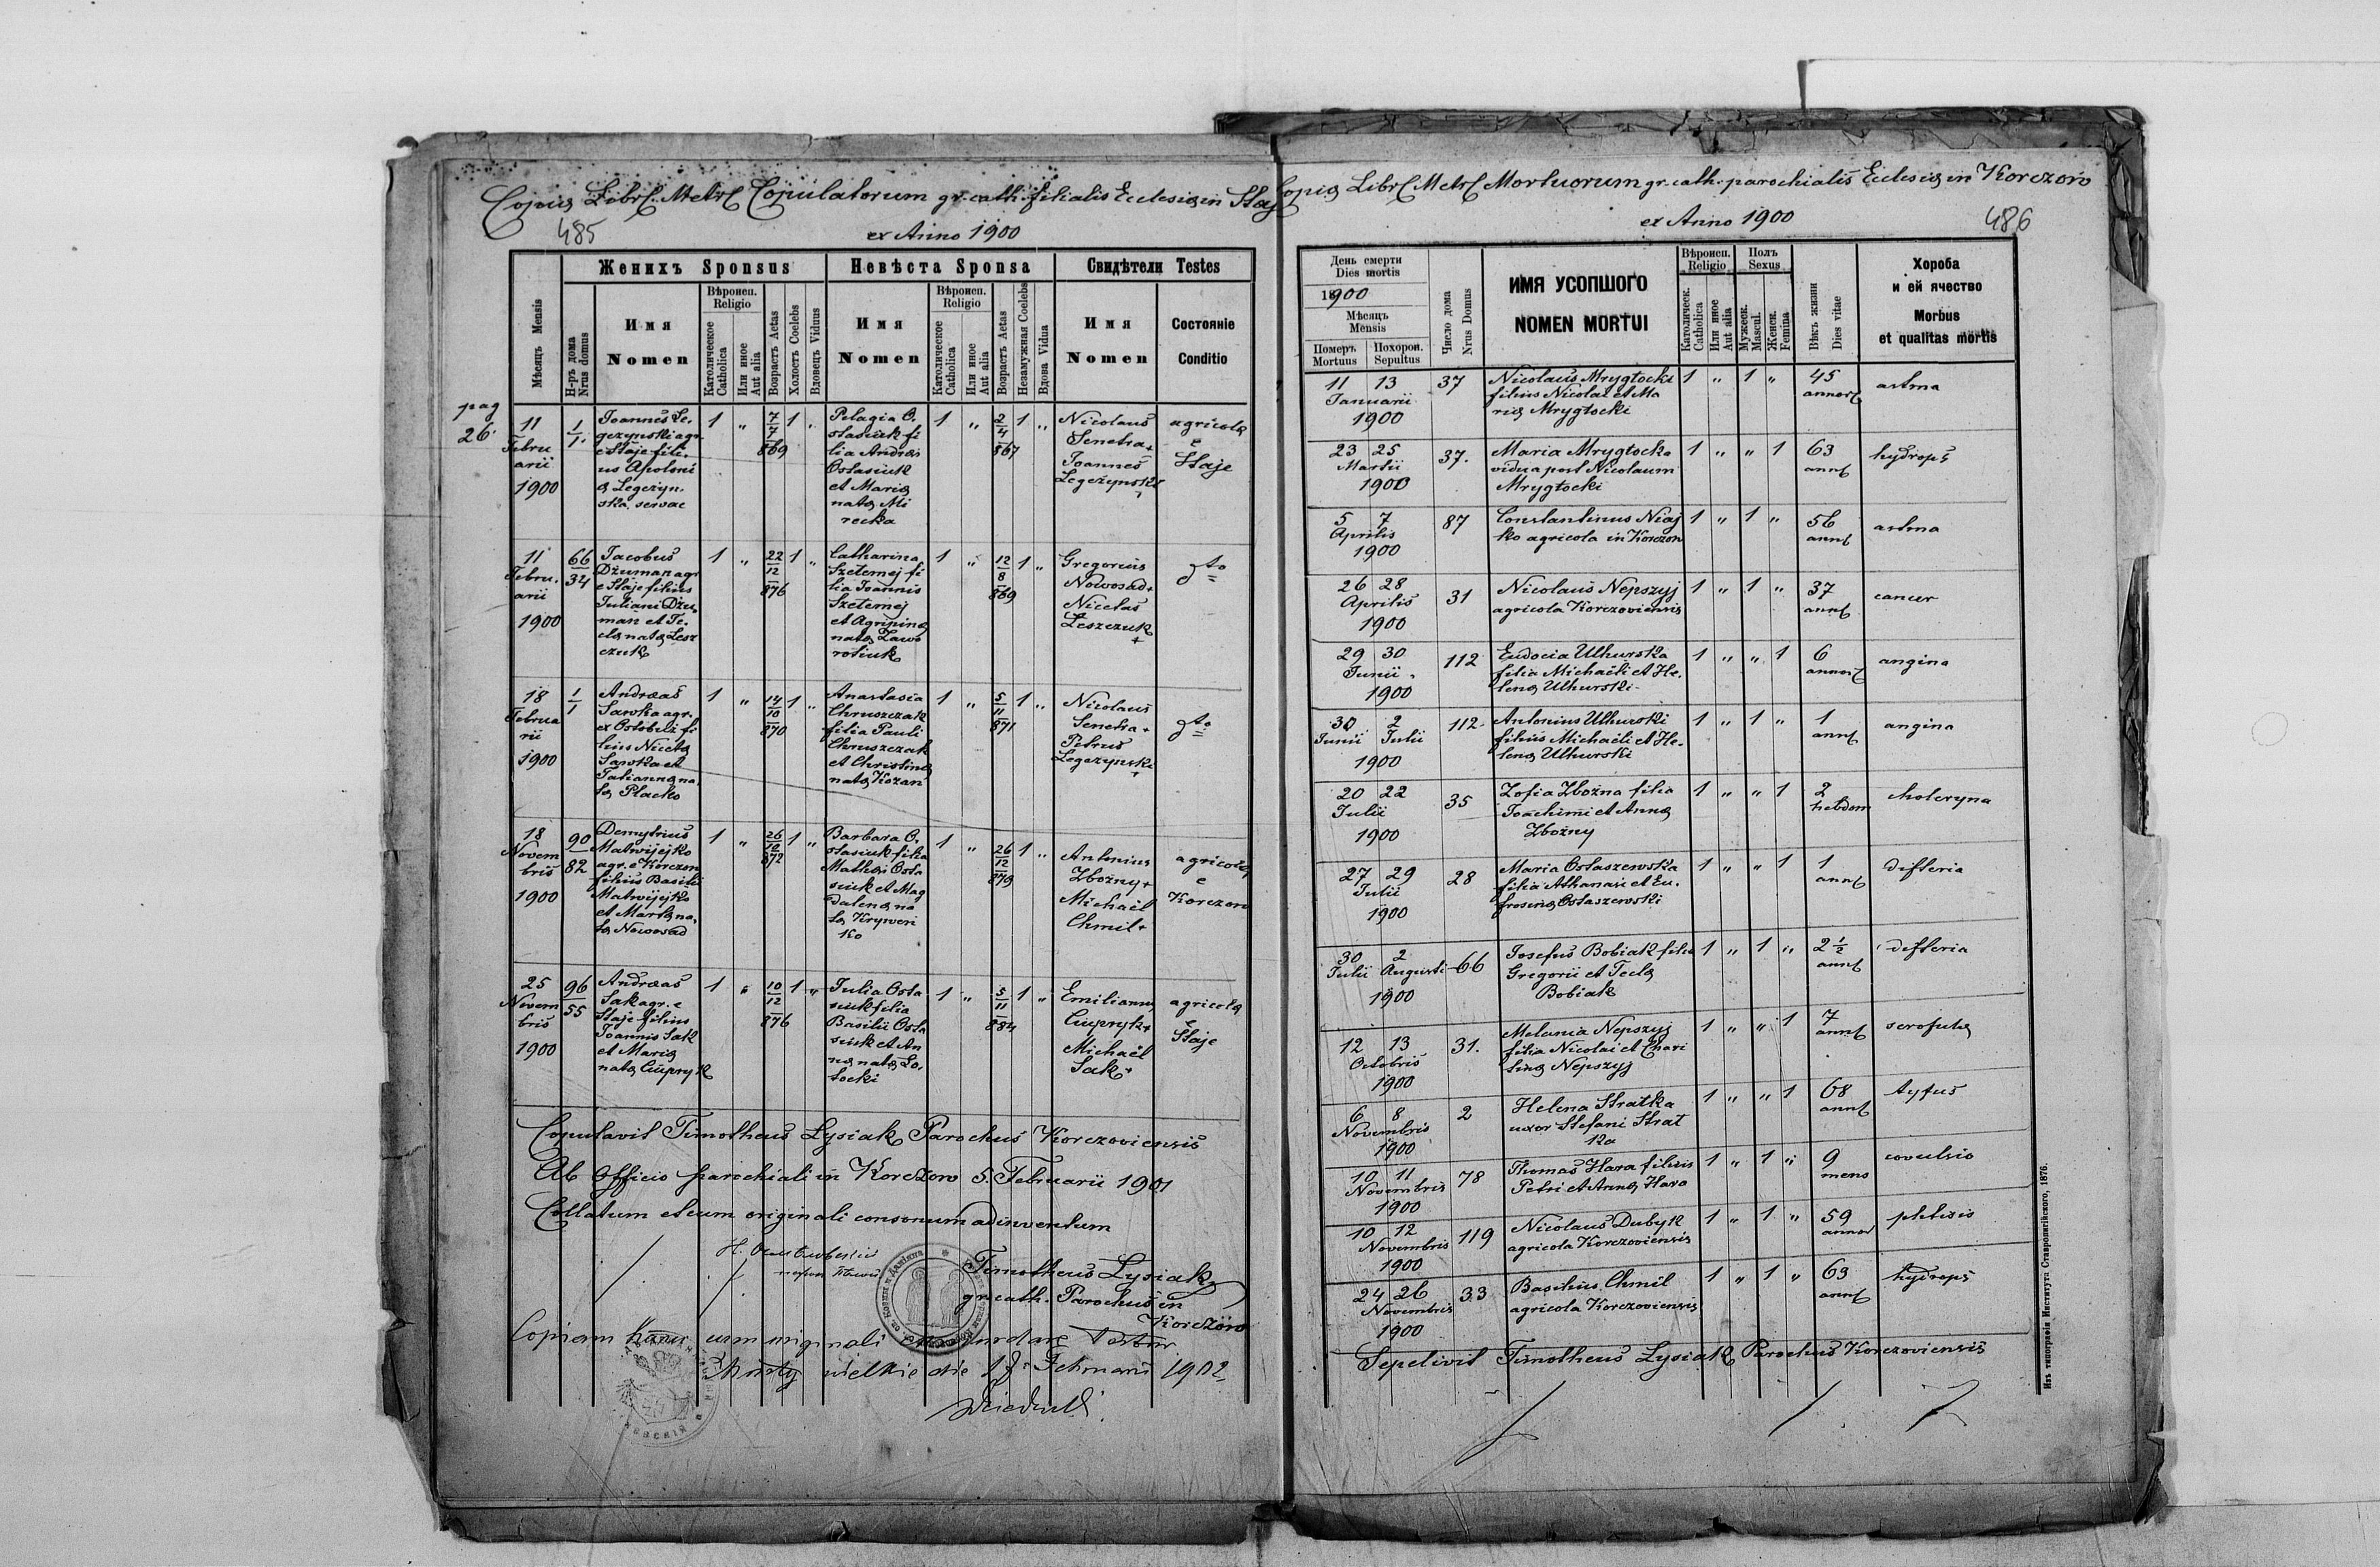 Copia Libri Metr. Copulatorum gr. cath. filialis Ecclesiae in Staje
ex Anno 1900
485
Мѣсяцъ Mensis
Женихъ Sponsus
Н-ръ дома Nrus domus
Имя Nomen
Вѣроисп. Religio
Католическое Catholica
Или иное Aut alia
Возрастъ Aetas
Холостъ Coelebs
Вдовецъ Viduus
Невѣста Sponsa
Имя Nomen
Вѣроисп. Religio
Католическое Catholica
Или иное Aut alia
Возрастъ Aetas
Незамужная Coelebs
Вдова Vidua
Свидѣтели Testes
Имя Nomen
Состояніе Conditio
pag
26.
11 Februarii 1900
1/1.
Joannes Le,
gezynski agr.
e Staje fili,
us Apoloni
ae Legezyn,
ska servae
1 " 7/7 869 1 "
Pelagia O,
stasiuk fi
lia Andreae
Ostasiuk
et Maria
nata Mi
recka
1 " 2/4 867 1 "
Nicolaus
Senetra +
Joannes
Legezynski
+
agricolae
e
Staje
11 Februarii 1900
66/34
Jacobus
Dżuman agr
e Staje filius
Juliani Dżu,
man et Te,
cla nata Lesz
czuk
1 " 22/12 876 1 "
Catharina
Szetemej fi
lia Joannis
Szetemej
et Agripina
nata Zawo
rotiuk
1 " 12/8 869 1 "
Gregorius
Nowosad +
Nicetas
Leszczuk
+
dto
18 Februarii 1900
1/1
Andreas
Sawka agr.
ex Ostobuż fi
lius Niceta
Sawka et
Tatianna na,
ta Placko
1 " 14/10 870 1 "
Anastasia
Chruszczak
filia Pauli
Chruszczak
et Christina
nata Kozan
1 " 5/11 871 1 "
Nicolaus
Senetra +
Petrus
Legezynski
+
dto
18 Novembris 1900
90/82
Demytrius
Matwijejko
agr. e Korczow
filius Basilii
Matwijejko
et Marta na,
ta Nowosad
1 " 26/10 872 1 "
Barbara O,
stasiuk filia
Mathei Osta
siuk et Mag
dalena na
ta Krywen
ko
1 " 26/12 879 1 "
Antonius
Zbożny +
Michaël
Chmil +
agricolae
e
Korczow
25 Novembris 1900
96/55
Andreas
Sak agr. e
Staje filius
Joannis Sak
et Maria
nata Ciupryk
1 " 10/12 876 1 "
Julia Osta
siuk filia
Basilii Osta
siuk et An
na nata Lo,
tocki
1 " 5/11 884 1 "
Emilianus
Ciupryk +
Michaël
Sak +
agricolae
e
Staje
Copulavit Timotheus Lysiak Parochus Korczoviensis
Ab Officio parochiali in Korczow 5. Februarii 1901
Collatum et cum originali consonum adinventum
Timotheus Lysiak
gr. cath. Parochus in
Korczow
Copiam cum originali testor
wielkie die 18. Februarii 1902
Copia Libri Metr. Mortuorum gr. cath. parochialis Ecclesiae in Korczow
ex Anno 1900
486
День смерти Dies mortis
1900
Мѣсяцъ Mensis
Померъ Mortuus
Похорон. Sepultus
Число дома Nrus Domus
ИМЯ УСОПШОГО
NOMEN MORTUI
Вѣроисп. Religio
Католическ. Catholica
Или иное Aut alia
Полъ Sexus
Мужеск. Mascul.
Женск. Femina
Вѣкъ жизни Dies vitae
Хороба
и ей ячество
Morbus
et qualitas mortis
11 13 Januarii 1900
37
Nicolaus Mrygłocki
filius Nicolai et Ma
ria Mrygłocki
1 " 1 " 45 annor. astma
23 25 Martii 1900
37.
Maria Mrygłocka
vidua post Nicolaum
Mrygłocki
1 " " 1 63 ann. hydrops
5 7 Aprilis 1900
87
Constantinus Niaj
ko agricola in Korczow
1 " 1 " 56 ann. astma
26 28 Aprilis 1900
31
Nicolaus Nepszyj
agricola Korczoviensis
1 " 1 " 37 ann. cancer
29 30 Junii 1900
112
Eudocia Uhurska
filia Michaëli et He,
lena Uhurski
1 " " 1 6 annor. angina
30 Junii 2 Julii 1900
112
Antonius Uhurski
filius Michaëli et He,
lena Uhurski
1 " 1 " 1 ann. angina
20 22 Julii 1900
35
Zofia Zbożna filia
Joachimi et Anna
Zbożny
1 " " 1 2 hebdom choleryna
27 29 Julii 1900
28
Maria Ostaszewska
filia Athanasii et Eu,
frosina Ostaszewski
1 " " 1 1 ann. difteria
30 Julii 2 Augusti 1900
66
Josefus Bobiak filius
Gregorii et Tecla
Bobiak
1 " 1 " 2 1/2 ann. difteria
12 13 Octobris 1900
31.
Melania Nepszyj
filia Nicolai et Chari
tina Nepszyj
1 " " 1 7 ann. scrofula
6 8 Novembris 1900
2
Helena Stratka
uxor Stefani Strat
ka
1 " " 1 68 ann. tyfus
10 11 Novembris 1900
78
Thomas Hara filius
Petri et Anna Hara
1 " 1 " 9 mens covulsio
10 12 Novembris 1900
119
Nicolaus Dubyk
agricola Korczoviensis
1 " 1 " 59 annor phtisis
24 26 Novembris 1900
33
Basilius Chmil
agricola Korczoviensis
1 " 1 " 63 ann. hydrops
Sepelivit Timotheus Lysiak Parochus Korczoviensis
Изъ типографіи Института Ставропигійского, 1876.